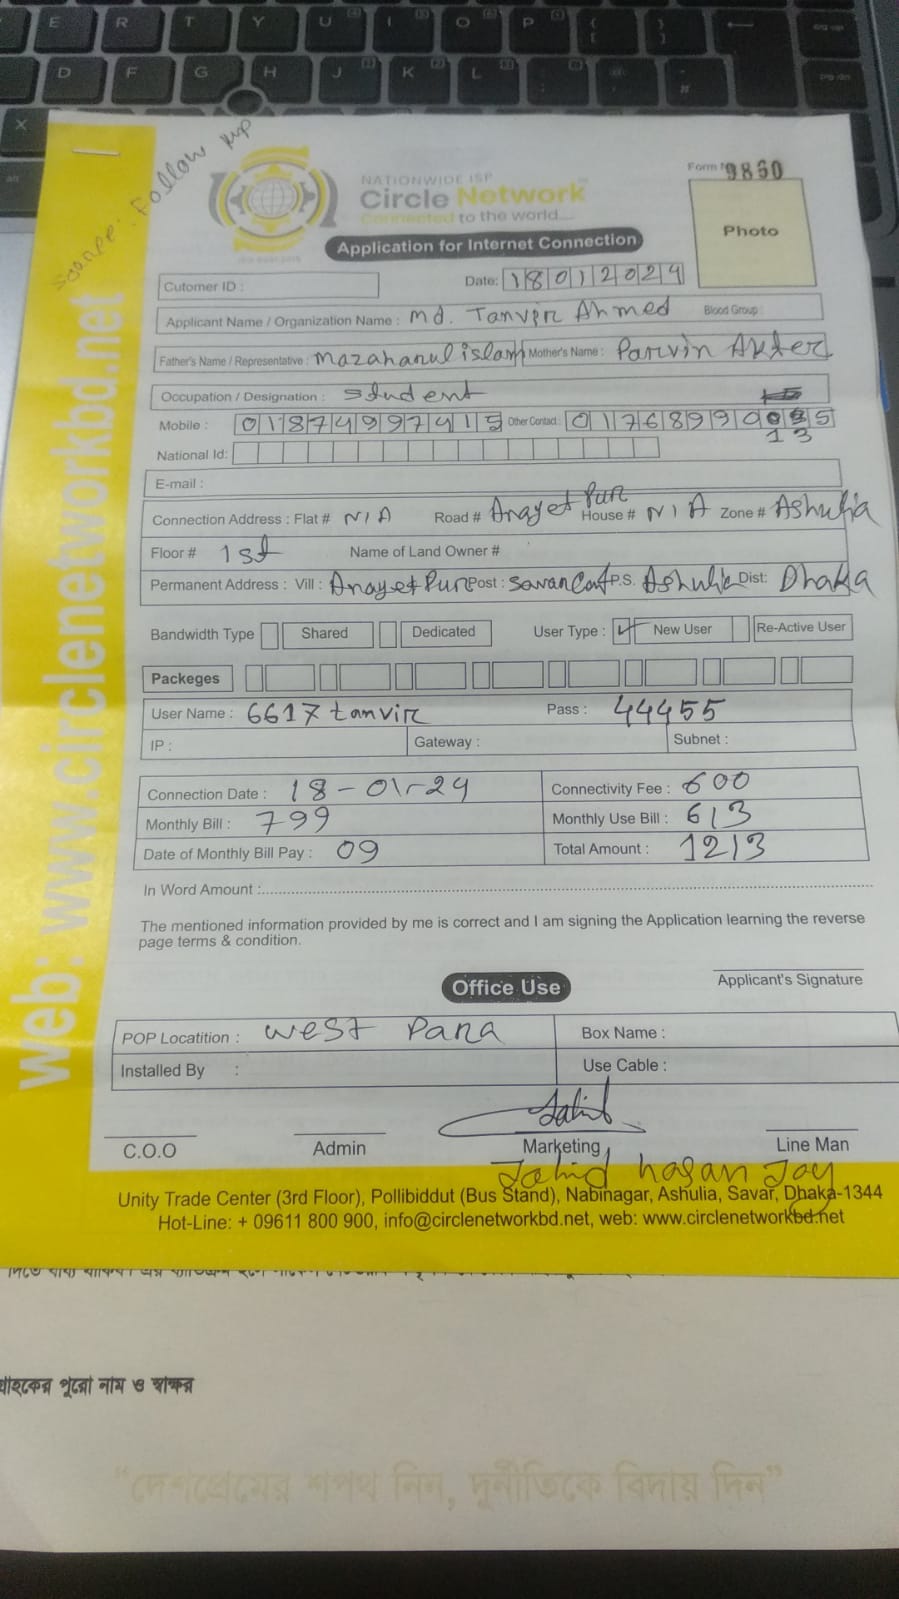 E R T Y U I O P
D F G H J K L
Follow up
NATIONWIDE ISP
Circle Network
Connected to the world....
Form 9860
Photo
Application for Internet Connection
Cutomer ID :
Date: 18012024
Applicant Name / Organization Name : Md. Tanvir Ahmed Blood Group :
Father's Name / Representative : Mazaharul islam Mother's Name : Parvin Akter
Occupation / Designation : Student
Mobile : 01874997415 Other Contact :
National Id:
E-mail :
Connection Address : Flat # N/A Road # Anayetpur House # N/A Zone # Ashulia
Floor # 1st Name of Land Owner #
Permanent Address : Vill : Anayetpur Post : Savar Cant P.S. Ashulia Dist: Dhaka
Bandwidth Type Shared Dedicated User Type : ✓ New User Re-Active User
Packeges
User Name : 6617tanvir Pass : 44455
IP : Gateway : Subnet :
Connection Date : 18-01-24 Connectivity Fee : 600
Monthly Bill : 799 Monthly Use Bill : 613
Date of Monthly Bill Pay : 09 Total Amount : 1213
In Word Amount :
The mentioned information provided by me is correct and I am signing the Application learning the reverse
page terms & condition.
Applicant's Signature
Office Use
POP Locatition : West Para Box Name :
Installed By : Use Cable :
Jahid
C.O.O Admin Marketing Line Man
Jahid hasan Joy
Unity Trade Center (3rd Floor), Pollibiddut (Bus Stand), Nabinagar, Ashulia, Savar, Dhaka-1344
Hot-Line: + 09611 800 900, info@circlenetworkbd.net, web: www.circlenetworkbd.net
web: www.circlenetworkbd.net
পুরো নাম ও স্বাক্ষর
“দেশপ্রেমের শপথ নিন, দুর্নীতিকে বিদায় দিন”